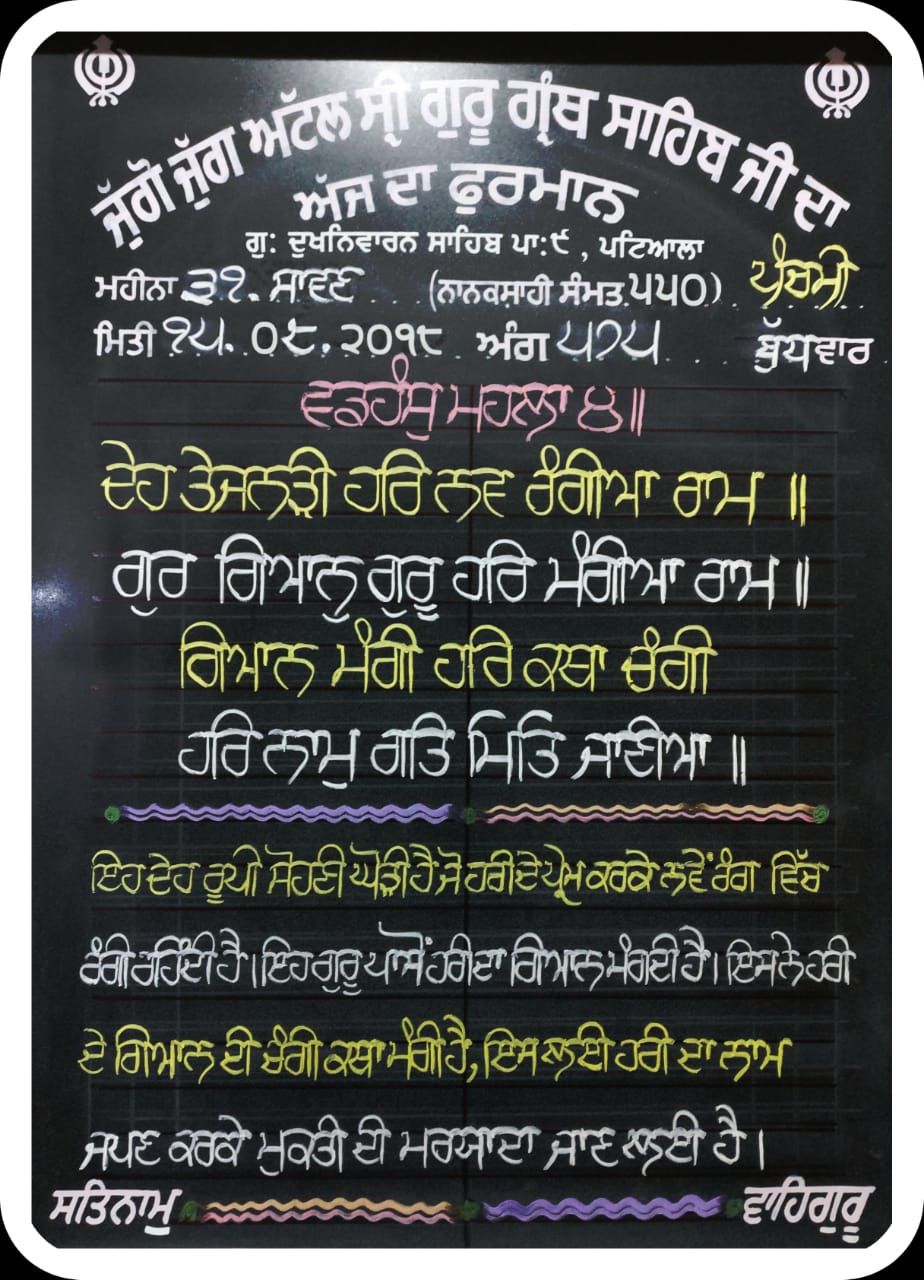 ਜੁੱਗੋ ਜੁੱਗ ਅੱਟਲ ਸ੍ਰੀ ਗੁਰੂ ਗ੍ਰੰਥ ਸਾਹਿਬ ਜੀ ਦਾ
ਅੱਜ ਦਾ ਫੁਰਮਾਨ
ਗੁ: ਦੁਖਨਿਵਾਰਨ ਸਾਹਿਬ ਪਾ:੯ , ਪਟਿਆਲਾ
ਮਹੀਨਾ ੩੧. ਸਾਵਣ (ਨਾਨਕਸ਼ਾਹੀ ਸੰਮਤ ੫੫੦) ਪੰਚਮੀ
ਮਿਤੀ ੧੫. ੦੮. ੨੦੧੮ ਅੰਗ ੫੭੫ ਬੁੱਧਵਾਰ
ਵਡਹੰਸੁ ਮਹਲਾ ੪॥
ਦੇਹ ਤੇਜਨੜੀ ਹਰਿ ਨਵ ਰੰਗੀਆ ਰਾਮ ॥
ਗੁਰ ਗਿਆਨੁ ਗੁਰੂ ਹਰਿ ਮੰਗੀਆ ਰਾਮ ॥
ਗਿਆਨ ਮੰਗੀ ਹਰਿ ਕਥਾ ਚੰਗੀ
ਹਰਿ ਨਾਮੁ ਗਤਿ ਮਿਤਿ ਜਾਣੀਆ ॥
ਇਹ ਦੇਹ ਰੂਪੀ ਸੋਹਣੀ ਘੋੜੀ ਹੈ ਜੋ ਹਰੀ ਦੇ ਪ੍ਰੇਮ ਕਰਕੇ ਨਵੇਂ ਰੰਗ ਵਿੱਚ
ਰੰਗੀ ਰਹਿੰਦੀ ਹੈ । ਇਹ ਗੁਰੂ ਪਾਸੋਂ ਹਰੀ ਦਾ ਗਿਆਨ ਮੰਗਦੀ ਹੈ । ਇਸ ਨੇ ਹਰੀ
ਦੇ ਗਿਆਨ ਦੀ ਚੰਗੀ ਕਥਾ ਮੰਗੀ ਹੈ, ਇਸ ਲਈ ਹਰੀ ਦਾ ਨਾਮ
ਜਪਣ ਕਰਕੇ ਮੁਕਤੀ ਦੀ ਮਰਯਾਦਾ ਜਾਣ ਲਈ ਹੈ ।
ਸਤਿਨਾਮੁ ਵਾਹਿਗੁਰੂ